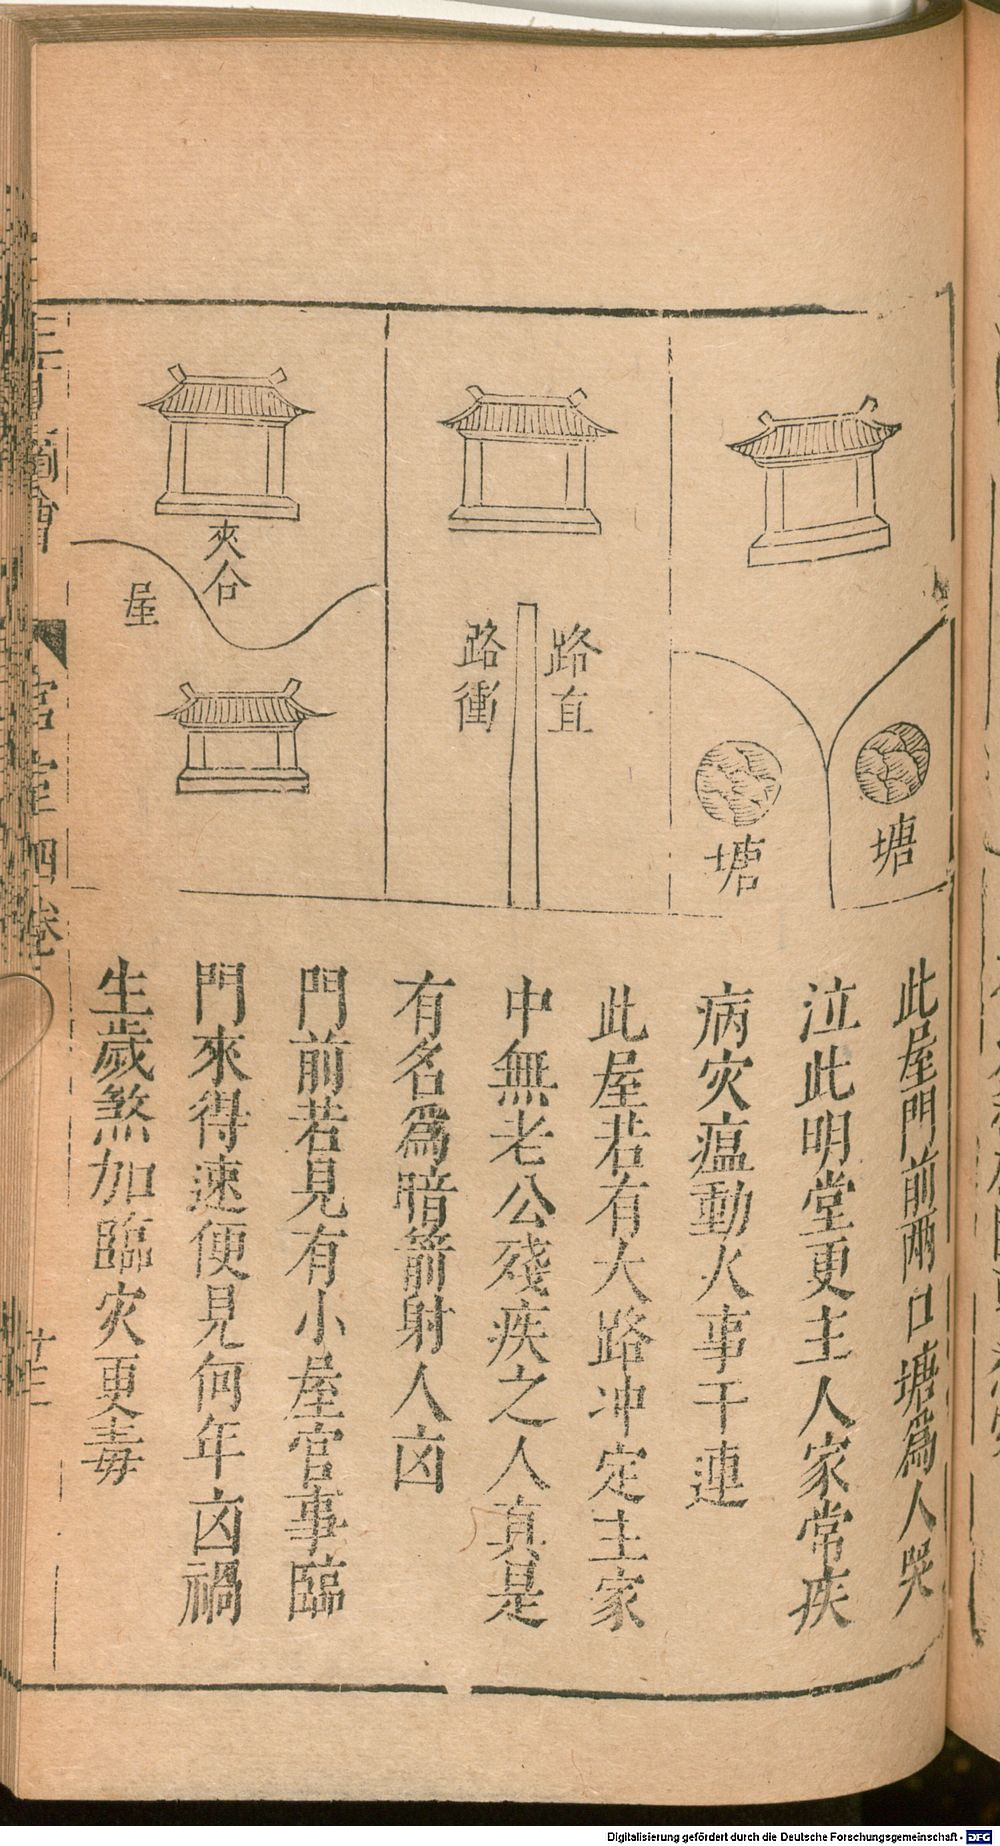 塘
塘
路直
路衝
夾合
屋
此屋門前兩口塘爲人哭
泣此明堂更主人家常疾
病灾瘟動火事干連
此屋若有大路冲定主家
中無老公殘疾之人真是
有名爲暗箭射人凶
門前若見有小屋官事臨
門來得速便見何年凶禍
生歲煞加臨灾更毒
三才圖會
宮室四卷
廿三
Digitalisierung gefördert durch die Deutsche Forschungsgemeinschaft - DFG